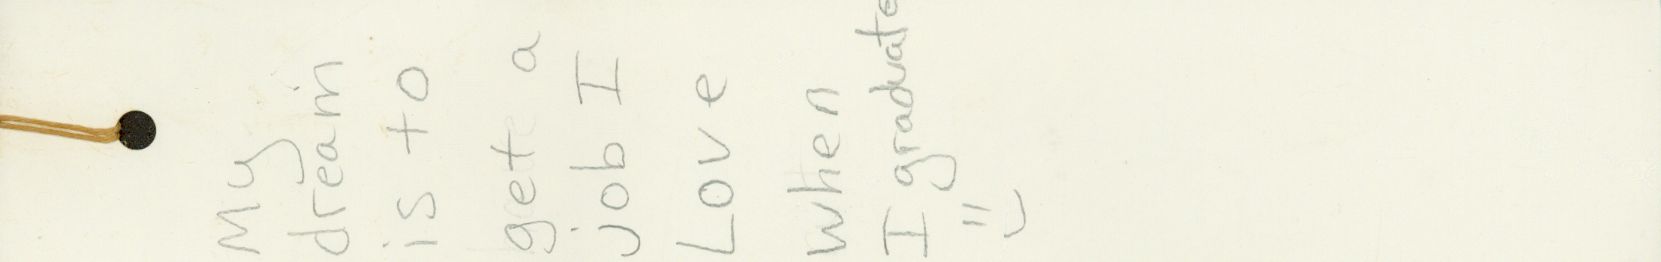 My
dream
is to
get a
job I
Love
when
I graduate